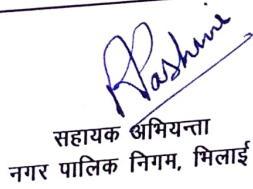 RPashine
सहायक अभियन्ता
नगर पालिक निगम, भिलाई